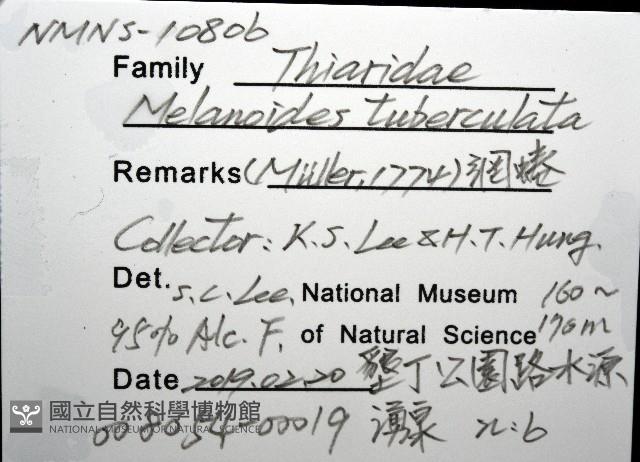 NMNS-10806
Family Thiaridae
Melanoides tuberculata
Remarks (Müller, 1774) 網蜷
Collector: K.S. Lee & H.T. Hung.
Det. S.C. Lee, National Museum 160~
95% Alc. F. of Natural Science 170m
Date 2019.02.20 墾丁公園路水源
國立自然科學博物館
NATIONAL MUSEUM OF NATURAL SCIENCE
008054-00019 湧泉 n:6